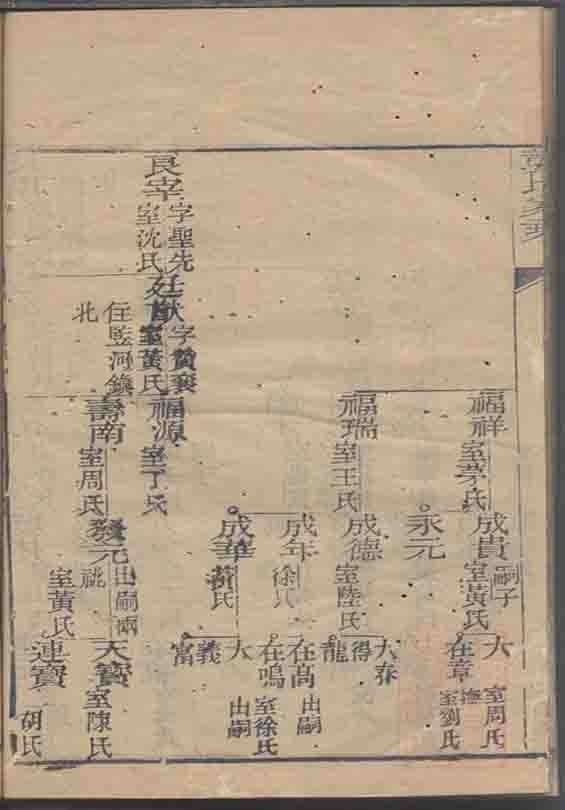 良宰
字聖先
室沈氏
廷猷
字贊襄
室黃氏
住監河鎮
北
福祥
室茅氏
福瑞
室王氏
福源
室丁氏
壽南
室周氏
成貴
嗣子
室黃氏
永元
成德
室陸氏
成年
徐氏
成華
黃氏
發元
出嗣兩
祧
室黃氏
大
室周氏
在章
撫
室劉氏
大春
得龍
在高
出嗣
在鳴
室徐氏
大義
出嗣
富
天寶
室陳氏
連寶
胡氏